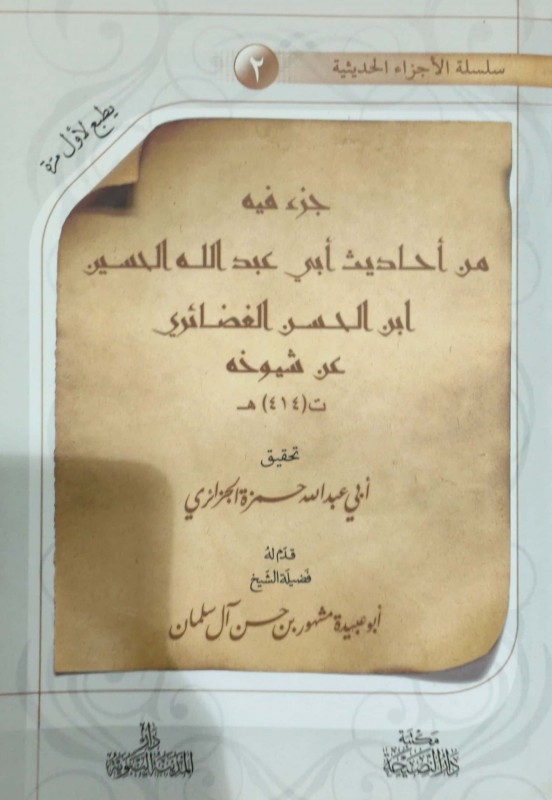 سلسلة الأجزاء الحديثية ٢
يطبع لأول مرّة
جزء فيه
من أحاديث أبي عبد الله الحسين
ابن الحسن الغضائري
عن شيوخه
ت(٤١٤) هـ
تحقيق
أبي عبدالله حمزة الجزائري
قدّم له
فضيلة الشيخ
أبو عبيدة مشهور بن حسن آل سلمان
مكتبة
دار النصيحة
دار
المدينة النبوية